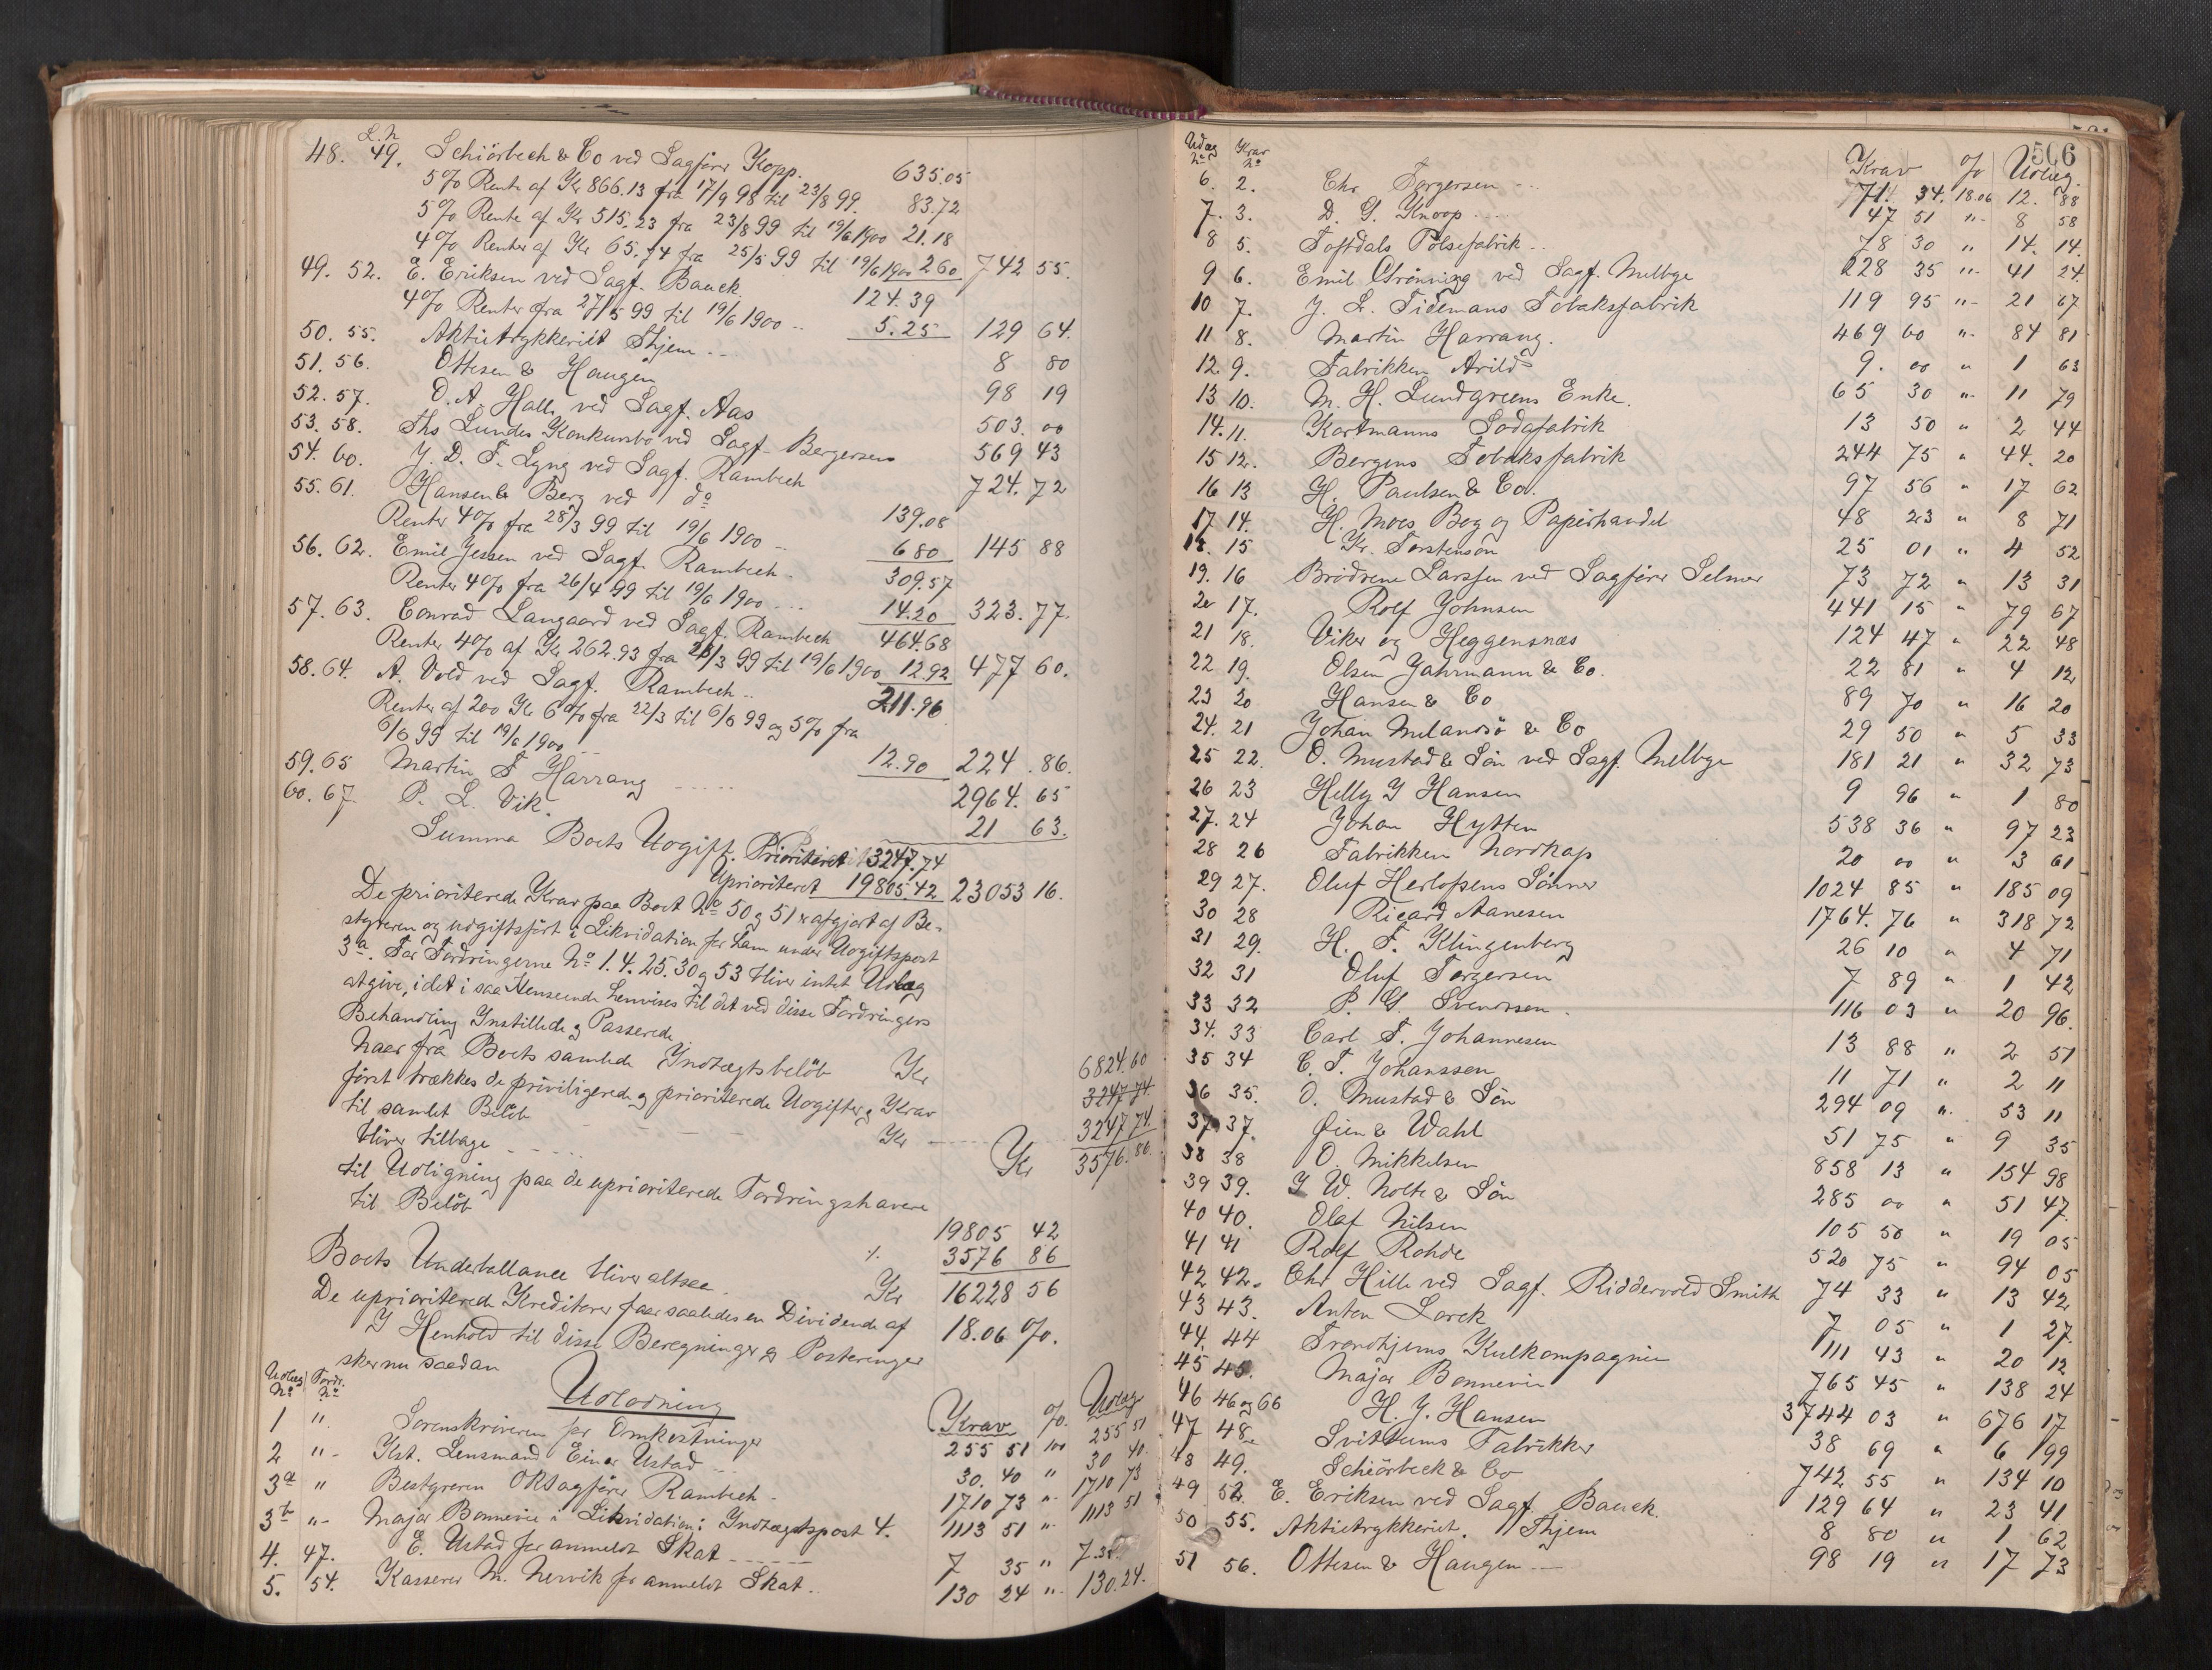 L.N
48. 49. Schiörbech & Co ved Sagfører Kopp. 635.05
5% Rente af Kr 866.13 fra 17/9 98 til 23/8 99. 83.72
5% Rente af Kr 515.23 fra 23/8 99 til 19/6 1900 21.18
4% Renter af Kr 65.74 fra 25/5 99 til 19/6 1900 2.60 742 55.
49. 52. E. Eriksen ved Sagf. Bauck 124.39
4% Renter fra 27/5 99 til 19/6 1900 .. 5.25 129 64.
50. 55. Aktietrykkeriet Thjem .. 8 80
51. 56. Ottesen & Haugen 98 19
52. 57. O. A. Halle ved Sagf. Aas 503. 00
53. 58. Ths Lundes Konkursbo ved Sagf. Bergersen 569 43
54. 60. J. D. F. Lyng ved Sagf. Rambech 724. 72
55. 61. Hansen & Berg ved do 139.08
Renter 4% fra 28/3 99 til 19/6 1900 .. 6 80 145 88
56. 62. Emil Jessen ved Sagf. Rambech. 309.57
Renter 4% fra 26/4 99 til 19/6 1900 ... 14.20 323. 77.
57. 63. Conrad Langaard ved Sagf. Rambech 464.68
Renter 4% af Kr 262.93 fra 28/3 99 til 19/6 1900 12.92 477 60.
58. 64. A. Vold ved Sagf. Rambech .. 211.96
Renter af 200 Kr 6% fra 22/3 til 6/6 99 og 5% fra
6/6 99 til 19/6 1900 .. 12.90 224. 86.
59. 65 Martin F Harrang ..... 2964. 65
60. 67. P. L. Vik. 21 63.
Summa Boets Udgift. Prioriteret 3247.74
Uprioriteret 19805.42 23053 16.
De prioriterede Krav paa Boet No 50 og 51 er afgjort af Be-
styreren og udgiftsført i Likvidation for ham under Udgiftspost
3a. For Fordringerne No 1. 4. 25. 30 og 53 bliver intet Udlæg
at give, idet i saa Henseende henvises til det ved disse Fordringers
Behandling Instillede og Passerede
Naar fra Boets samlede Indtægtsbeløb Kr 6824.60
først trækkes de priviligerede og prioriterede Udgifter og Krav 3247 74.
til samlet Beløb Kr 3247 74.
bliver tilbage ..... Kr 3576. 86.
til Udligning paa de uprioriterede Fordringshavere
til Beløb 19805 42
÷ 3576 86
Boets Underballance bliver altsaa Kr 16228 56
De uprioriterede Kreditorer faar saaledes en Dividende af 18.06 %.
I Henhold til disse Beregninger og Posteringer
sker nu saadan
Udlodning
Udlæg No Fordr. No Krav %. Udlæg
1 ". Sorenskriveren for Omkostninger 255 51 100 255 51
2 "- Kst. Lensmand Einar Ustad .. 30. 40 " 30 40.
3a " Bestyreren ORsagfører Rambech - 1710 73 "- 1710 73
3b "- Major Bonnevie i Likvidation: Indtægtspost 4. 1113 51 "- 1113 51
4. 47. E. Ustad for anmeldt Skat ----- 7 35 " 7.35.
5. 54. Kasserer M. Nervik for anmeldt Skat .. 130 24 "- 130.24.
506
Udlæg No Krav No Krav % Udlæg.
6. 2. Chr Torgersen .. 71. 34. 18.06 12. 88
7. 3. D. G. Knoop .... 47 51 "- 8 58
8 5. Toftdals Pølsefabrik .. 78 30 " 14. 14.
9 6. Emil Grönning ved Sagf. Melbye 228 35 "- 41 24.
10 7. J. L. Tidemans Tobaksfabrik 119 95 "- 21 67
11 8. Martin Harrang. 469 60 "- 84 81
12. 9. Fabrikken Arild 9. 00 " 1 63
13 10. M. H. Lundgreens Enke. 65 30 "- 11 79
14. 11. Kortmanns Sodafabrik 13 50 " 2 44
15 12. Bergens Tobaksfabrik 244 75 " 44. 20
16 13 H. Paulsen & Co. 97 56 " 17 62
17 14. H. Moes Bog og Papirhandel 48 23 " 8 71
18. 15 Kr. Torstenson 25 01 " 4 52
19. 16 Brödrene Larssen ved Sagfører Selmer 73 72 " 13 31
20 17. Rolf Johnsen 441 15 " 79 67
21 18. Viker og Heggensnæs 124 47 " 22 48
22 19. Olsen Jahrmann & Co. 22 81 " 4 12
23 20 Hansen & Co 89 70 " 16 20
24. 21 Johan Melandsö & Co 29 50 " 5 33
25 22. O. Mustad & Søn ved Sagf. Melbye 181 21 " 32 73
26 23 Helly J Hansen 9 96 " 1 80
27. 24 Johan Hytten 538 36 " 97 23
28 26 Fabrikken Nordkap 20 00 " 3 61
29 27. Oluf Herlofsens Sönner 1024 85 " 185 09
30 28 Ricard Aanesen 1764. 76 " 318 72
31 29. H. F. Klingenberg 26 10 " 4 71
32 31 Oluf Torgersen 7 89 " 1 42
33 32 P. G. Svendsen . 116 03 " 20 96.
34. 33 Carl F. Johannesen 13 88 " 2 51
35 34 C. F. Johanssen 11 71 " 2 11
36 35. O. Mustad & Søn 294 09 ". 53 11
37 37. Øien & Wahl 51 75 " 9 35
38 38 O. Mikkelsen 858 13 " 154 98
39 39. J W. Nolte & Søn 285 00 " 51 47.
40 40. Olaf Nilsen 105 50 " 19 05
41 41 Rolf Rohde 520 75 " 94 05
42 42. Chr Hille ved Sagf. Riddervold Smith 74 33 " 13 42
43 43. Anton Lorck 7 05 " 1 27.
44. 44 Trondhjems Kulkompagnie 111 43 " 20 12
45 45. Major Bonnevie 765 45 " 138 24
46 46 og 66 H. J. Hansen 3744 03 " 676 17
47 48. Svitzums Fabrikker 38 69 " 6 99
48 49. Schiörbeck & Co 742 55 " 134 10
49 52. E. Eriksen ved Sagf Bauck. 129 64 " 23 41
50 55. Aktietrykkeriet. Thjem 8 80 " 1 62
51 56. Ottesen & Haugen -- 98 19 " 17 73